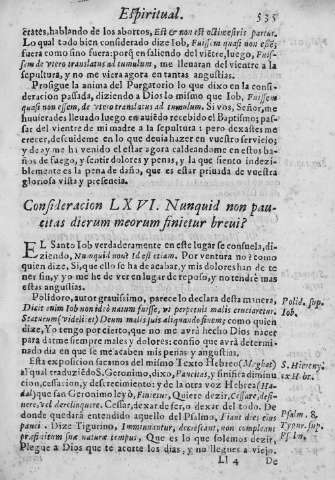 Espiritual. 535
erates, hablando de los abortos, Est & non est octimestris partus.
Lo qual todo bien considerado dize Iob, Fuissem quasi non essē;
fuera como sino fuera: porq̃ en saliendo del viētre, luego, Fuis-
sem de vtero translatus ad tumulum, me lleuaran del vientre a la
sepultura, y no me viera agora en tantas angustias.
Prosigue la anima del Purgatorio lo que dixo en la consi-
deracion passada, diziendo a Dios lo mismo que Iob, Fuissem
quasi non essem, de vtero translatus ad tumulum. Si vos, Señor, me
huuierades lleuado luego en auiēdo recebido el Baptismo; pas-
sar del vientre de mi madre a la sepultura: pero dexastes me
crecer, descuideme en lo que deuia hazer en vuestro seruicio;
y de ay me ha venido el estar agora caldeandome en estos ba-
ños de fuego, y sentir dolores y penas, y la que siento indezi-
blemente es la pena de daño, que es estar priuada de vuestra
gloriosa vista y presencia.
Consideracion LXVI. Nunquid non pau-
citas dierum meorum finietur breui?
EL Santo Iob verdaderamente en este lugar se consuela, di-
ziendo, Nunquid non? Id est etiam. Por ventura no? como
quien dize, Si, que ello se ha de acabar, y mis dolores han de te
ner fin, y yo me he de ver en lugar de reposo, y no tendrè mas
estas angustias.
Polidoro, autor grauissimo, parece lo declara desta manera,
Polid. sup.
Iob.
Dicit enim Iob non idcirò natum fuisse, vt perpetuis malis cruciaretur.
Staturum (videlicet) Deum malis suis aliquando finem; como quien
dize, Yo tengo por cierto, que no me avrà hecho Dios nacer
para darme siempre males y dolores: confio que avrà determi-
nado dia en que se me acaben mis penas y angustias.
Esta exposicion sacanos del mismo Texto Hebreo (Meghat)
S. Hierony.
ex Hebr.
al qual traduziēdo S. Geronimo, dixo, Paucitas, y sinifica diminu
cion, cessacion, y descrecimiento: y de la otra voz Hebrea (Ha-
dal) que san Geronimo leyò, Finietur, Quiere dezir, Cessare, desi-
nere, vel derelinquere. Cessar, dexar de ser, o dexar del todo. De
donde quedarà entendido aquello del Psalmo, Fiant dies eius
Psalm. 8.
pauci. Dize Tigurino, Imminuantur, decrescant, non compleant
Tygur. sup.
Ps. In.
præfinitum suæ naturæ tempus. Que es lo que solemos dezir,
Plegue a Dios que te acorte los dias, y no llegues a viejo.
Ll 4 De